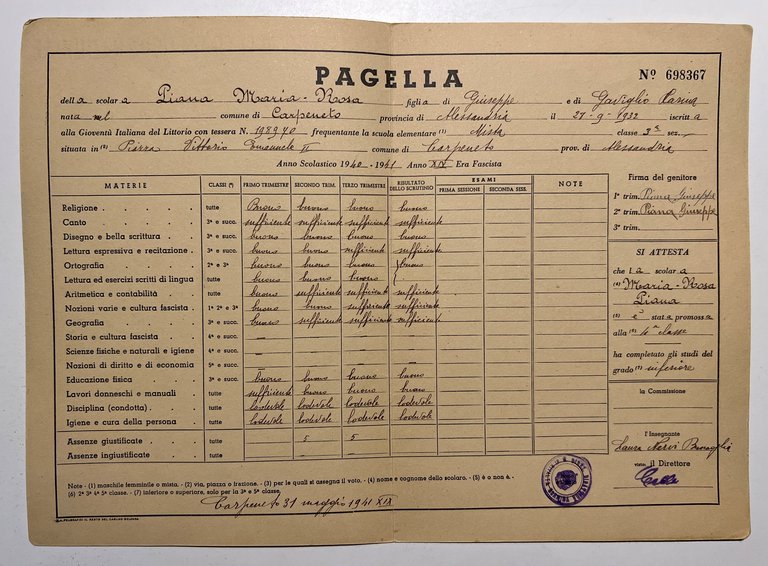 PAGELLA
Nº 698367
della scolara Piana Maria-Rosa figlia di Giuseppe e di Gaviglio
nata nel comune di Carpeneto provincia di Alessandria il 27-9-1932 iscritta
alla Gioventù Italiana del Littorio con tessera N. 198940 frequentante la scuola elementare (1) Mista classe 3ª sez.
situata in (2) Piazza Vittorio Emanuele II comune di Carpeneto prov. di Alessandria
Anno Scolastico 1940-1941 Anno XIX Era Fascista
MATERIE CLASSI (3) PRIMO TRIMESTRE SECONDO TRIM. TERZO TRIMESTRE RISULTATO DELLO SCRUTINIO ESAMI PRIMA SESSIONE SECONDA SESS. NOTE
Religione tutte Buono buono buono buono
Canto 3ª e succ. sufficiente sufficiente sufficiente sufficiente
Disegno e bella scrittura 3ª e succ. buono buono buono buono
Lettura espressiva e recitazione 3ª e succ. buono buono sufficiente sufficiente
Ortografia 2ª e 3ª buono buono buono buono
Lettura ed esercizi scritti di lingua tutte buono buono buono
Aritmetica e contabilità tutte buono sufficiente sufficiente sufficiente
Nozioni varie e cultura fascista 1ª 2ª e 3ª buono buono sufficiente sufficiente
Geografia 3ª e succ. buono sufficiente sufficiente sufficiente
Storia e cultura fascista 4ª e succ. —
Scienze fisiche e naturali e igiene 4ª e succ. —
Nozioni di diritto e di economia 5ª e succ. —
Educazione fisica 3ª e succ. buono buono buono buono
Lavori donneschi e manuali tutte sufficiente buono buono buono
Disciplina (condotta) tutte lodevole lodevole lodevole lodevole
Igiene e cura della persona tutte lodevole lodevole lodevole lodevole
Assenze giustificate tutte 5 5
Assenze ingiustificate tutte — — —
Firma del genitore
1º trim. Piana Giuseppe
2º trim. Piana Giuseppe
3º trim.
SI ATTESTA
che la scolara
(4) Maria-Rosa
Piana
(5) è stata promossa
alla (6) 4ª classe
ha completato gli studi del
grado (7) inferiore
la Commissione
l'Insegnante
Laura Nervi
visto: il Direttore
Note - (1) maschile femminile o mista. - (2) via, piazza o frazione. - (3) per le quali si assegna il voto. - (4) nome e cognome dello scolaro. - (5) è o non è. -
(6) 2ª 3ª 4ª 5ª classe. - (7) inferiore o superiore, solo per la 3ª e 5ª classe.
Carpeneto 31 maggio 1941 XIX